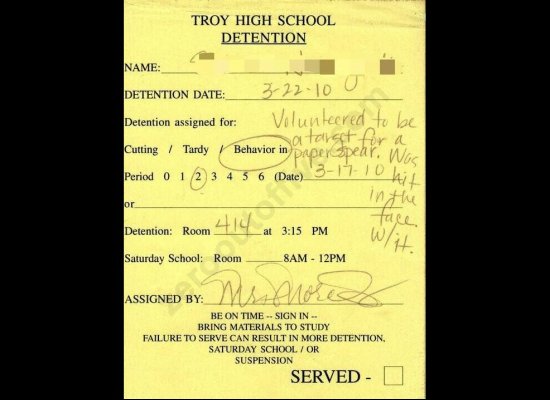 TROY HIGH SCHOOL
DETENTION
NAME:
DETENTION DATE: 3-22-10
Detention assigned for: Volunteered to be
a target for a
Cutting / Tardy / Behavior in paper spear. Was
Period 0 1 2 3 4 5 6 (Date) 3-17-10 hit
in the
or face
W/it.
Detention: Room 414 at 3:15 PM
Saturday School: Room 8AM - 12PM
ASSIGNED BY: Mrs.
BE ON TIME -- SIGN IN --
BRING MATERIALS TO STUDY
FAILURE TO SERVE CAN RESULT IN MORE DETENTION,
SATURDAY SCHOOL / OR
SUSPENSION
SERVED -